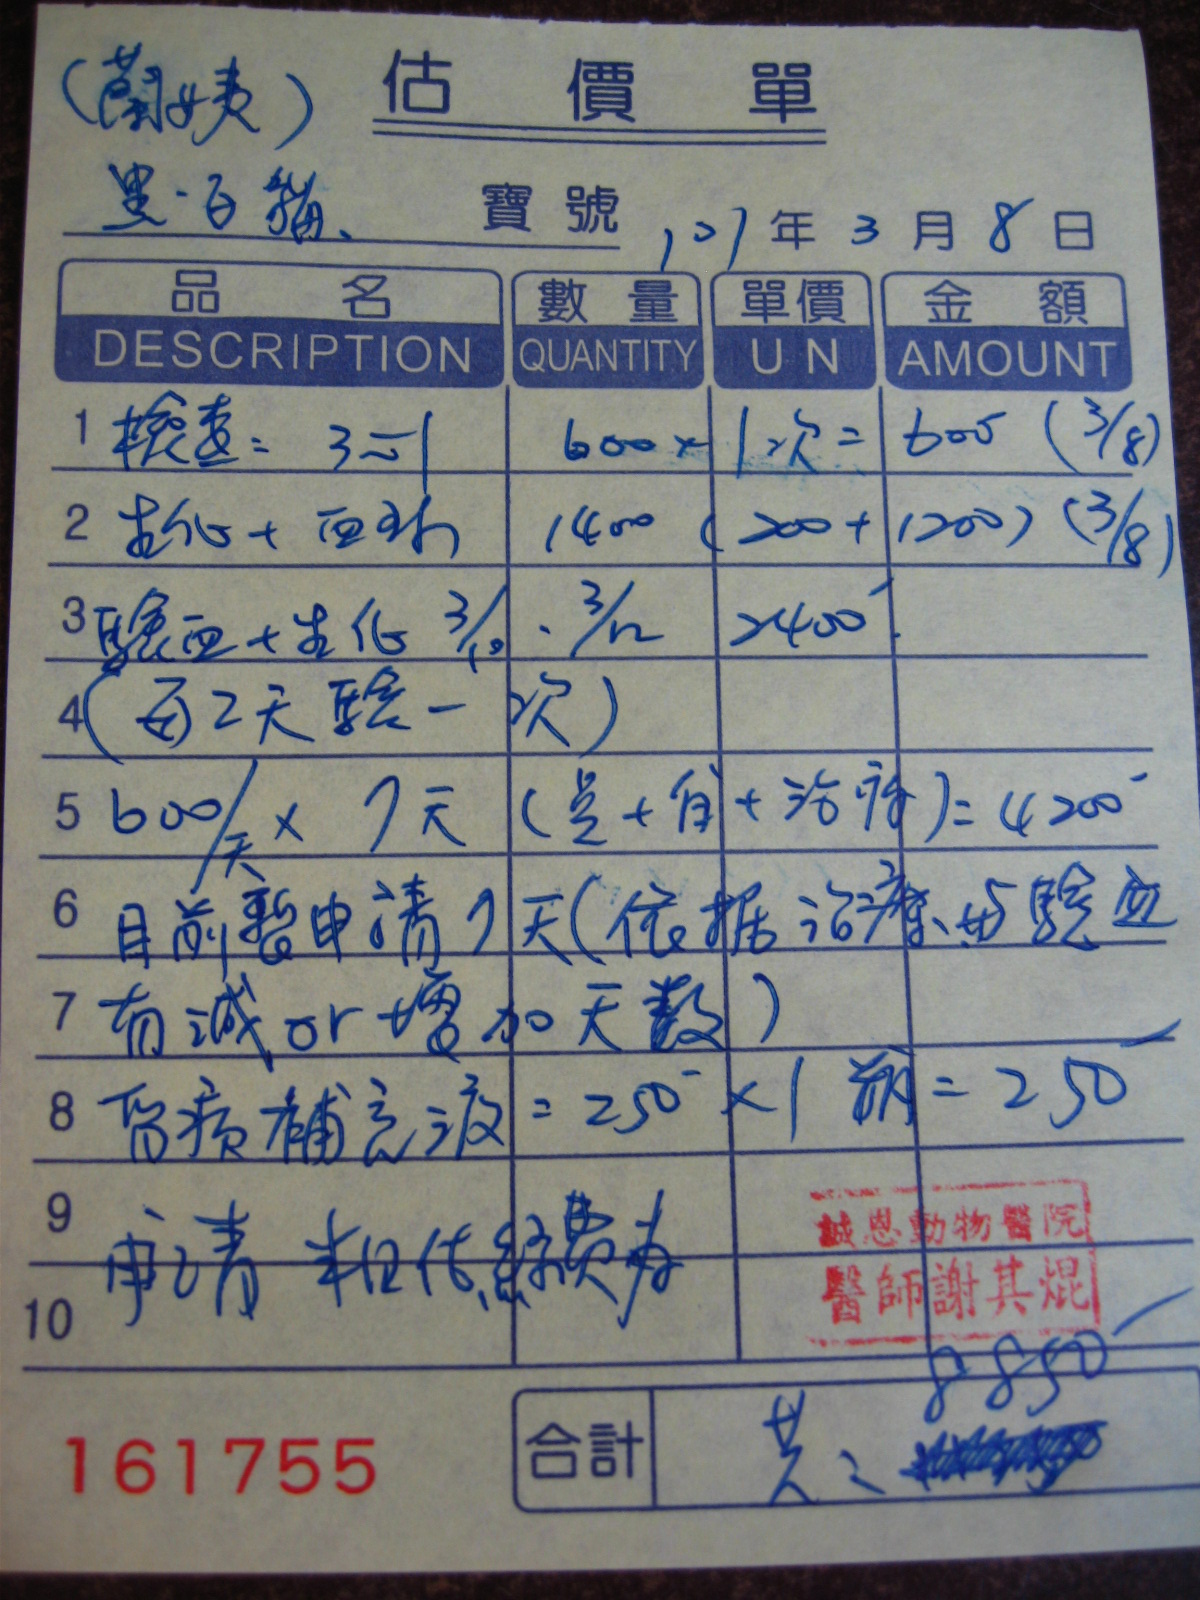 (蘭姨) 估價單
黑白貓、 寶號 107年3月8日
品名 數量 單價 金額
DESCRIPTION QUANTITY UN AMOUNT
1 檢查= 3合1 600 × 1次= 600 (3/8)
2 生化+血球 1400 (200+1200) (3/8)
3 驗血+生化 3/10、3/12 2400
4 (每2天驗一次)
5 600/天 × 7天 ( + + 治療)= 4200
6 目前暫申請7天(依据治療與驗血
7 有減or增加天數)
8 腎病補充液=250 × 1瓶=250
9
10 申請 经費為
誠恩動物醫院
醫師謝其焜
8850
合計 共:
161755